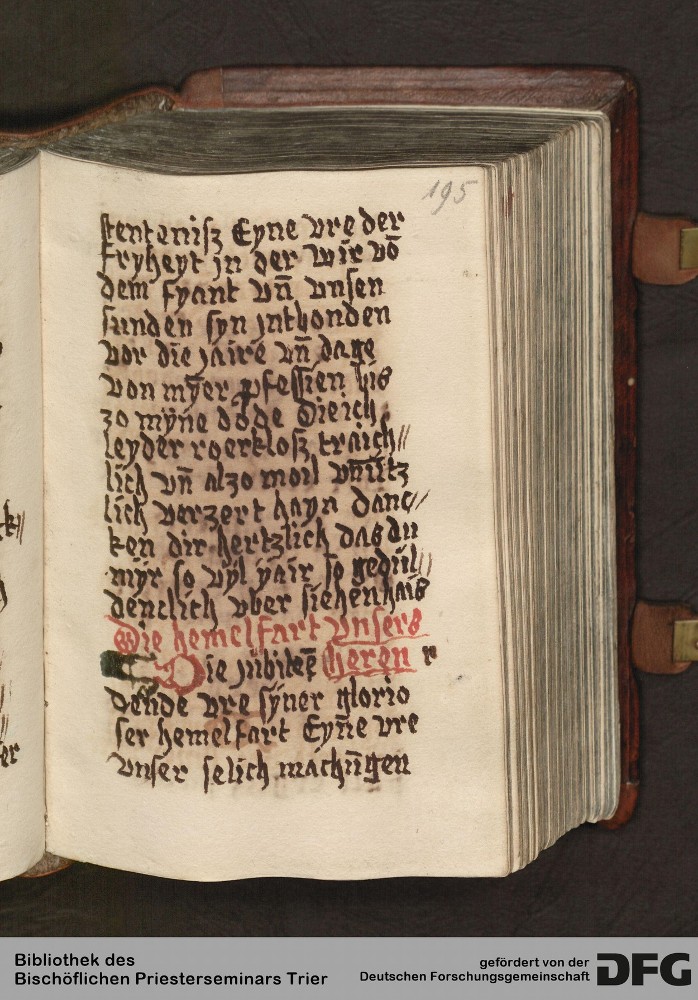 195
stentenisz Eyne vre der
fryheyt jn der wir vō
dem fyant vn̄ vnsen
sunden syn jnthonden
vor die jaire vn̄ dage
von mȳer ꝓfessien bis
zo myne dode Die ich
leyder roerklosz traich//
lich vn̄ alzo moil vn̄utz
lich verzert hayn danc//
ken dir hertzlich das du
myr so vyl yair so gedul//
denclich vber siehen hais
Die hemelfart vnsers
Die jubilerē heren r
dende vre syner glorio
ser hemelfart Eyn̄e vre
vnser selich machūgen
Bibliothek des
Bischöflichen Priesterseminars Trier
gefördert von der
Deutschen Forschungsgemeinschaft
DFG